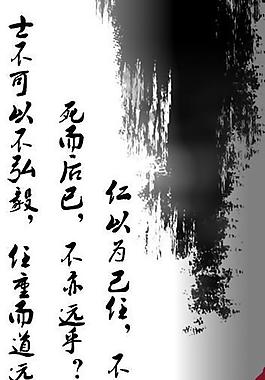 士不可以不弘毅，任重而道远
死而后已，不亦远乎？
仁以为己任，不